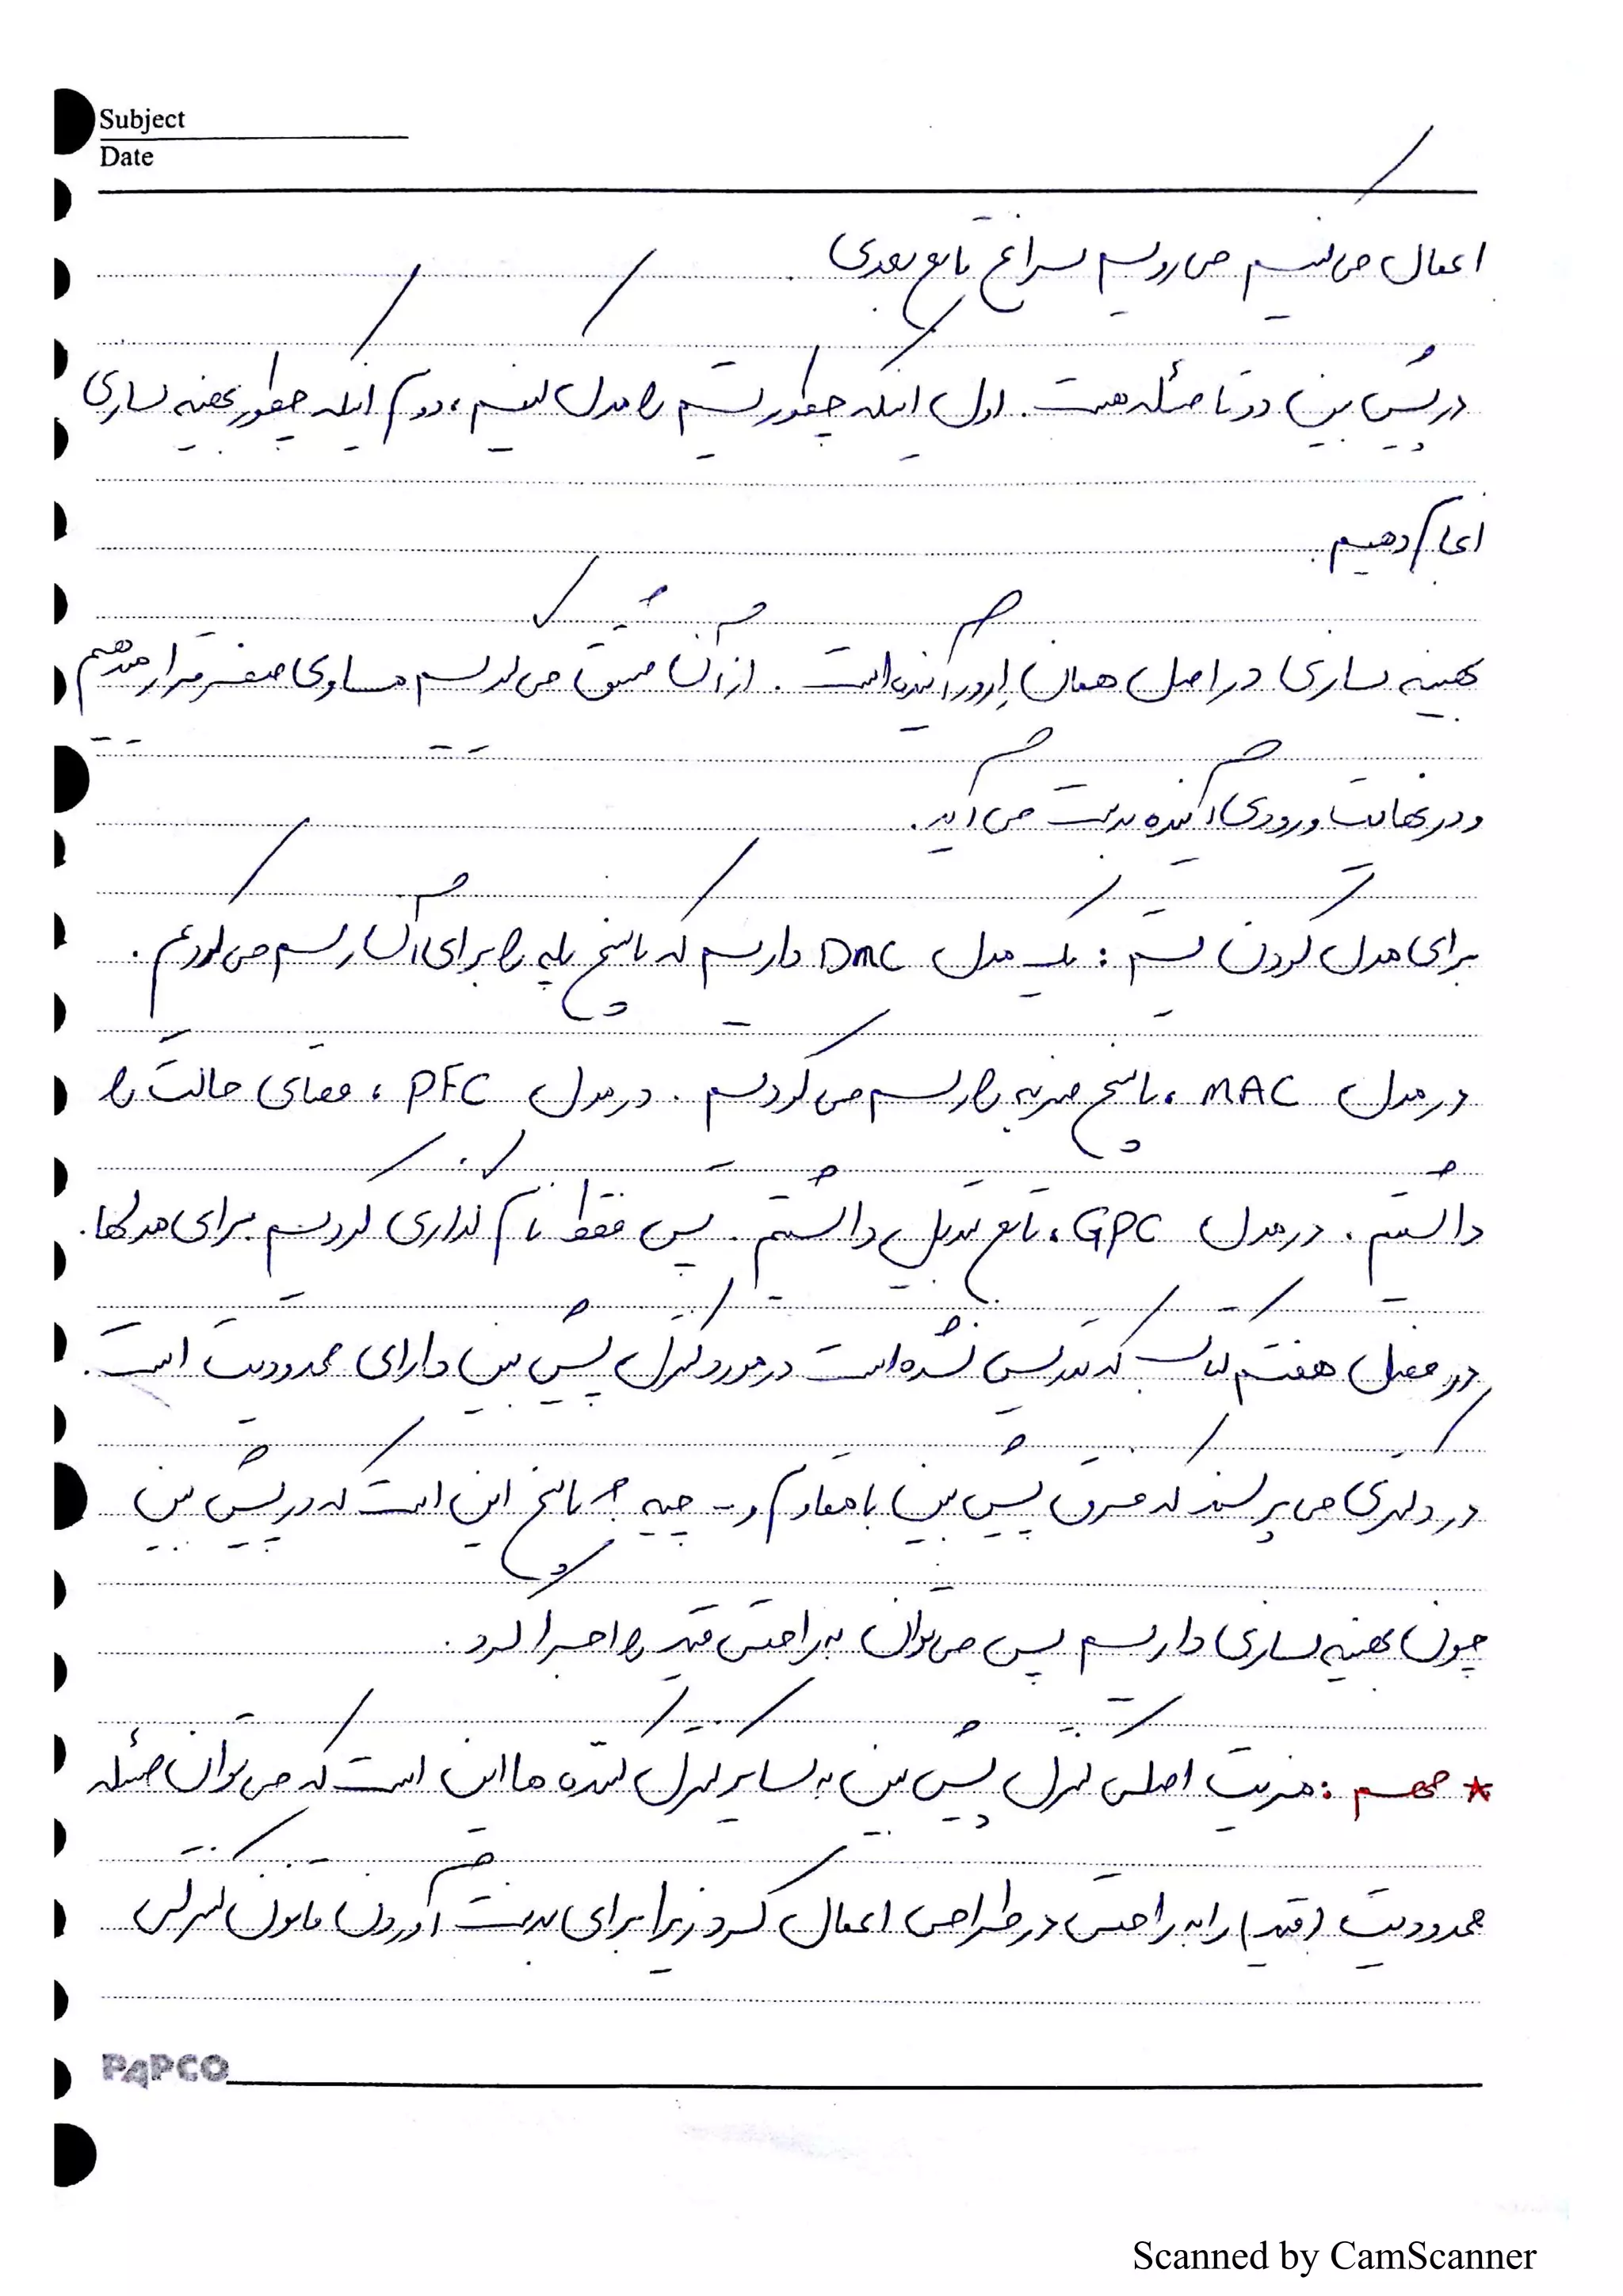 Subject
Date
اعمال می کنیم می رویم سراغ تابع بعدی.
در پیش بین دو تا مسئله هست. اول اینکه چطور سیستم را مدل کنیم، دوم اینکه چطور بهینه سازی
انجام دهیم.
بهینه سازی در اصل همان آینده است. از آن مشتق می گیریم مساوی صفر قرار میدهیم
و در نهایت ورودی آینده بدست می آید.
برای مدل کردن سیستم: یک مدل DMC داریم که پاسخ پله را برای آن رسم می کردیم.
در مدل MAC، پاسخ ضربه را رسم می کردیم. در مدل PFC، فضای حالت را
داشتیم. در مدل GPC، تابع تبدیل داشتیم. پس فقط نام گذاری کردیم برای مدلها.
در فصل هفتم کتاب که تدریس نشده است در مورد کنترل پیش بین دارای محدودیت است.
در دکتری می پرسند که فرق پیش بین با مقاوم و... چیه؟ پاسخ این است که در پیش بین
چون بهینه سازی داریم پس می توان به راحتی قید را اجرا کرد.
* مهم: مزیت اصلی کنترل پیش بین به سایر کنترل کننده ها این است که می توان مسئله
محدودیت (قید) را به راحتی در طراحی اعمال کرد زیرا برای بدست آوردن قانون کنترلی
PAPCO
Scanned by CamScanner